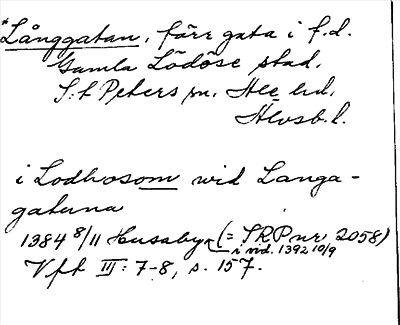 *Långgatan, förr gata i f.d.
Gamla Lödöse stad,
S:t Peters sn, Ale hd,
Älvsb. l.
i Lodhosom wid Langa-
gatuna
1384 8/11 Husaby (= SRP nr 2058)
i vid. 1392 10/9
Vft III: 7-8, s. 157.